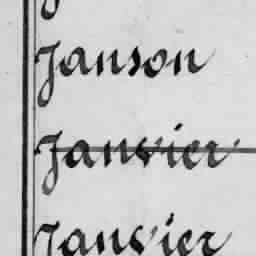 Janson
Janvier
Janvier